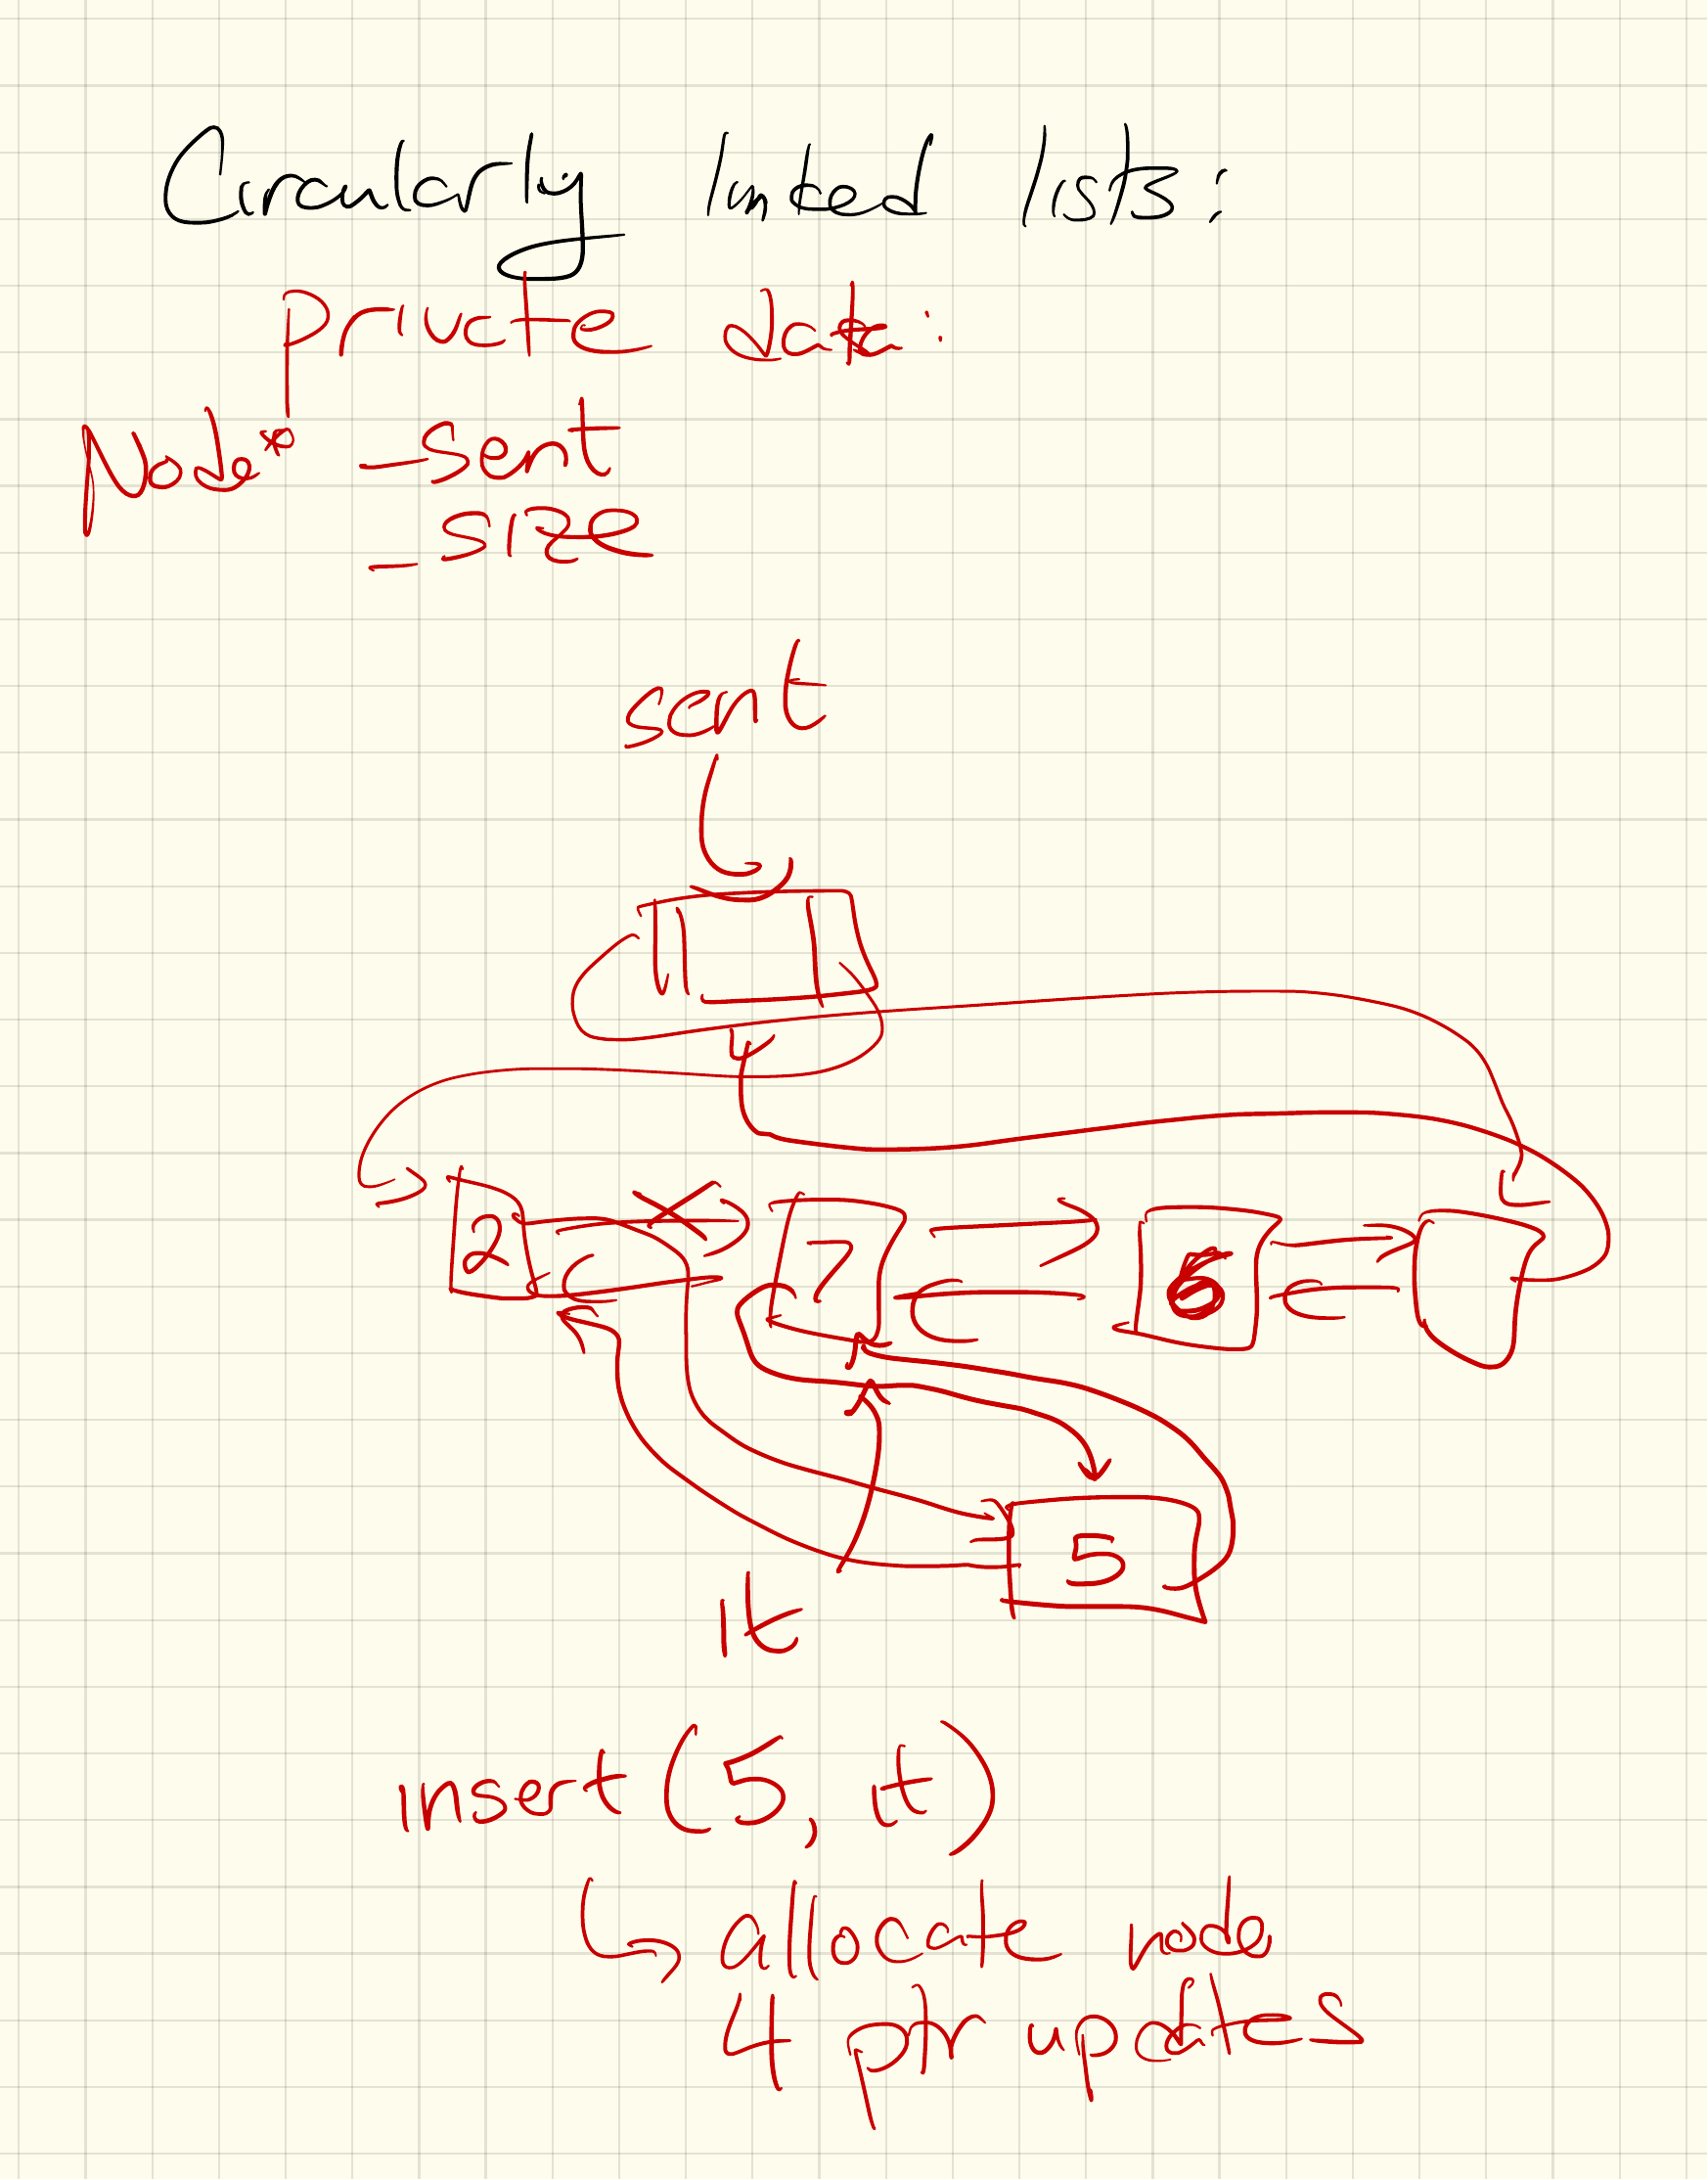 Circularly linked lists:
private data:
Node* _sent
_size
sent
2 7 6
5
it
insert(5, it)
↳ allocate node
4 ptr updates